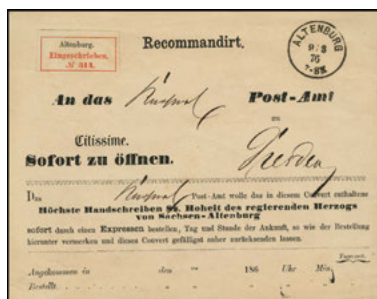 Altenburg.
Eingeschrieben.
№ 314.
Recommandirt.
ALTENBURG
9/8
76
7-8N
An das Post-Amt
zu
Citissime.
Sofort zu öffnen.
Dresden
Das Post-Amt wolle das in diesem Couvert enthaltene
Höchste Handschreiben Sr. Hoheit des regierenden Herzogs
von Sachsen-Altenburg
sofort durch einen Expressen bestellen, Tag und Stunde der Ankunft, so wie der Bestellung
hierunter vermerken und dieses Couvert gefälligst anher zurücksenden lassen.
Angekommen in den ten 186 Uhr Min.
Bestellt